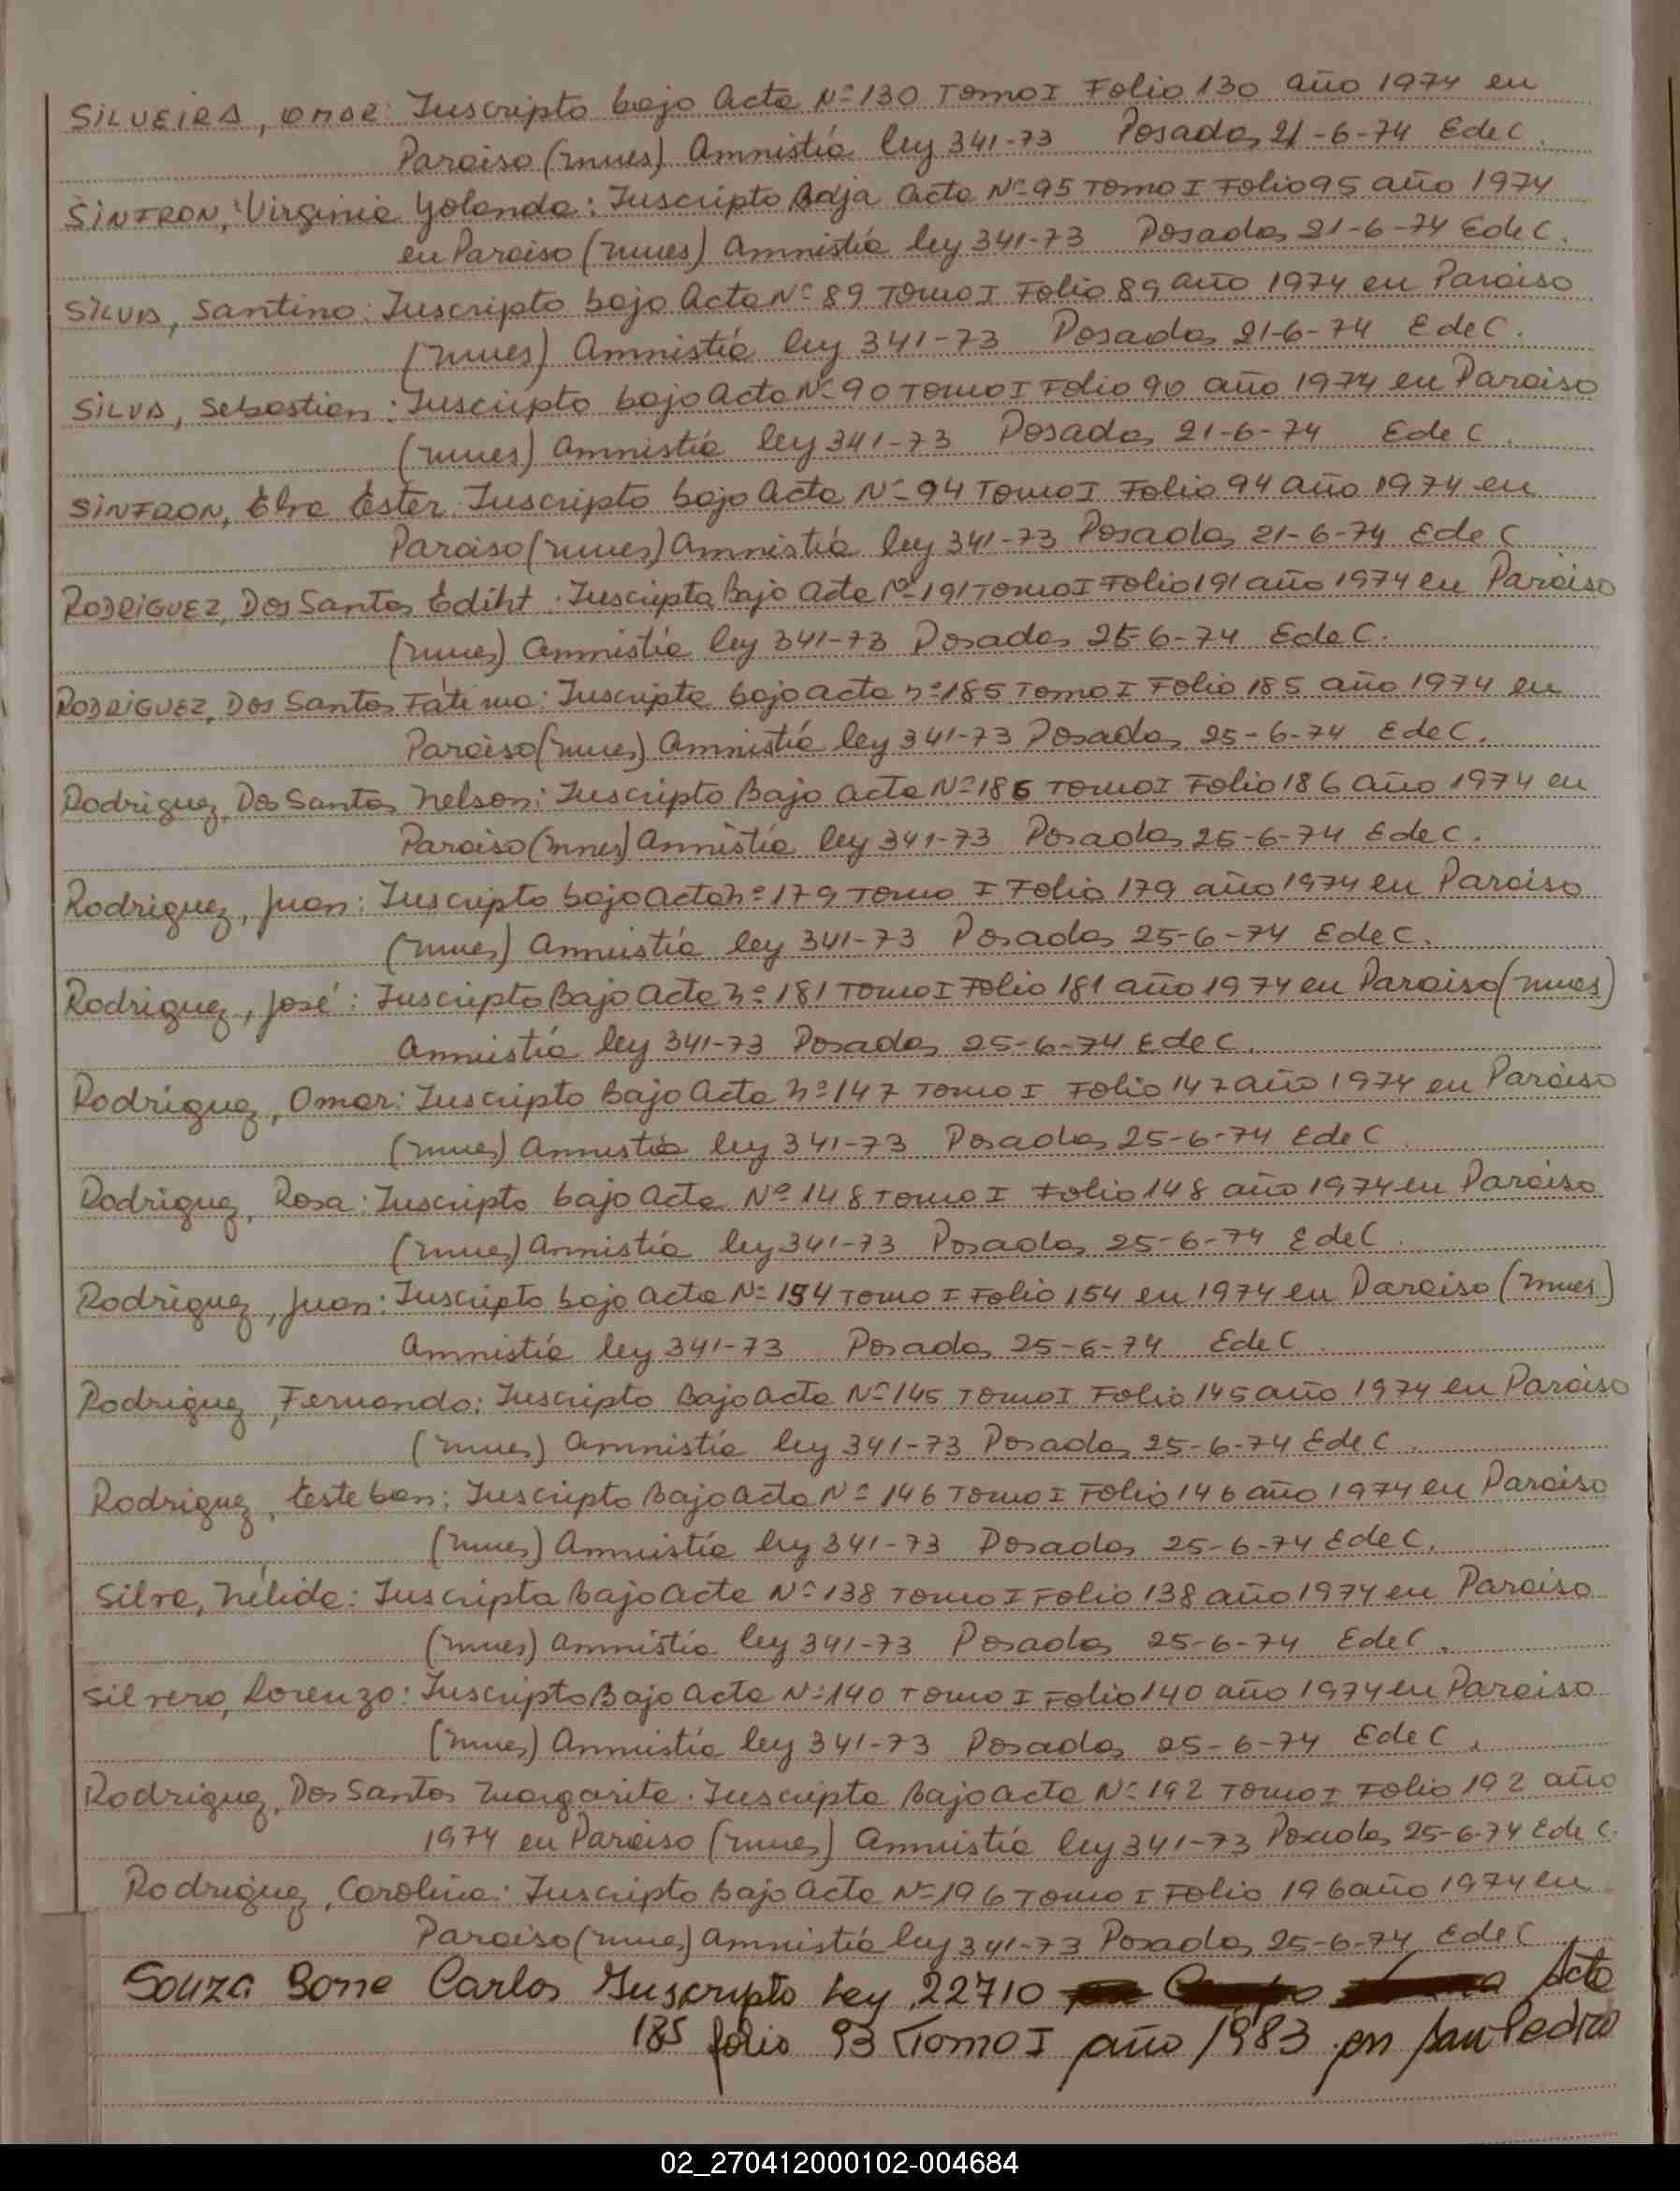 SILVEIRA, OMAR: Inscripto bajo Acta Nº 130 Tomo I Folio 130 año 1974 en
Paraiso (mnes) Amnistía ley 341-73 Posadas 21-6-74 E de C.
SINTRON, Virginia Yolanda: Inscripto Baja Acta Nº 95 Tomo I Folio 95 año 1974
en Paraiso (mnes) Amnistía ley 341-73 Posadas 21-6-74 E de C.
SILVA, Santino: Inscripto bajo Acta Nº 89 Tomo I Folio 89 año 1974 en Paraiso
(mnes) Amnistía ley 341-73 Posadas 21-6-74 E de C.
SILVA, Sebastian: Inscripto bajo Acta Nº 90 Tomo I Folio 90 año 1974 en Paraiso
(mnes) Amnistía ley 341-73 Posadas 21-6-74 E de C.
SINTRON, Ester Inscripto bajo Acta Nº 94 Tomo I Folio 94 año 1974 en
Paraiso (mnes) Amnistía ley 341-73 Posadas 21-6-74 E de C
RODRIGUEZ, Dos Santos Ediht. Inscripta Bajo Acta Nº 191 Tomo I Folio 191 año 1974 en Paraiso
(mnes) Amnistía ley 341-73 Posadas 25-6-74 E de C.
RODRIGUEZ, Dos Santos Fátima: Inscripta bajo acta nº 185 Tomo I Folio 185 año 1974 en
Paraiso (mnes) Amnistía ley 341-73 Posadas 25-6-74 E de C.
Rodriguez, Dos Santos Nelson: Inscripto Bajo acta Nº 186 Tomo I Folio 186 año 1974 en
Paraiso (mnes) Amnistía ley 341-73 Posadas 25-6-74 E de C.
Rodriguez, Juan: Inscripto bajo Acta nº 179 Tomo I Folio 179 año 1974 en Paraiso
(mnes) Amnistía ley 341-73 Posadas 25-6-74 E de C.
Rodriguez, José: Inscripto Bajo Acta nº 181 Tomo I Folio 181 año 1974 en Paraiso (mnes)
Amnistía ley 341-73 Posadas 25-6-74 E de C.
Rodriguez, Omar: Inscripto Bajo Acta nº 147 Tomo I Folio 147 año 1974 en Paraiso
(mnes) Amnistía ley 341-73 Posadas 25-6-74 E de C.
Rodriguez, Rosa: Inscripto bajo Acta Nº 148 Tomo I Folio 148 año 1974 en Paraiso
(mnes) Amnistía ley 341-73 Posadas 25-6-74 E de C
Rodriguez, Juan: Inscripto bajo acta Nº 154 Tomo I Folio 154 en 1974 en Paraiso (mnes)
Amnistía ley 341-73 Posadas 25-6-74 E de C
Rodriguez, Fernando: Inscripto Bajo Acta Nº 145 Tomo I Folio 145 año 1974 en Paraiso
(mnes) Amnistía ley 341-73 Posadas 25-6-74 E de C.
Rodriguez, Esteban: Inscripto Bajo Acta Nº 146 Tomo I Folio 146 año 1974 en Paraiso
(mnes) Amnistía ley 341-73 Posadas 25-6-74 E de C.
Silva, Nélida: Inscripta Bajo Acta Nº 138 Tomo I Folio 138 año 1974 en Paraiso
(mnes) Amnistía ley 341-73 Posadas 25-6-74 E de C.
Silvero, Lorenzo: Inscripto Bajo Acta Nº 140 Tomo I Folio 140 año 1974 en Paraiso
(mnes) Amnistía ley 341-73 Posadas 25-6-74 E de C.
Rodriguez, Dos Santos Margarita. Inscripta Bajo Acta Nº 192 Tomo I Folio 192 año
1974 en Paraiso (mnes) Amnistía ley 341-73 Posadas 25-6-74 E de C.
Rodriguez, Carolina: Inscripto Bajo Acta Nº 196 Tomo I Folio 196 año 1974 en
Paraiso (mnes) Amnistía ley 341-73 Posadas 25-6-74 E de C
Souza Carlos Inscripto Ley 22710 Acta
185 folio 93 Tomo I año 1983 en San Pedro
02_270412000102-004684